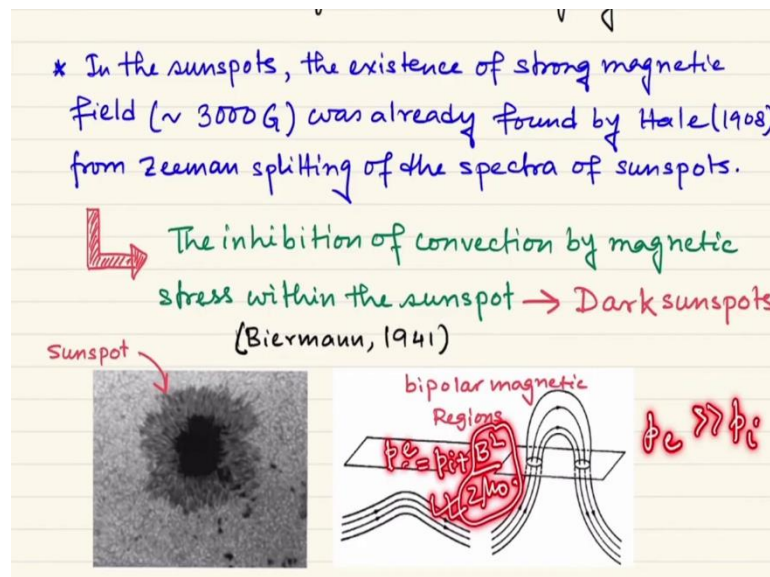 * In the sunspots, the existence of strong magnetic
field (~ 3000 G) was already found by Hale (1908)
from Zeeman splitting of the spectra of sunspots.
The inhibition of convection by magnetic
stress within the sunspot → Dark sunspots
(Biermann, 1941)
Sunspot
bipolar magnetic
Regions
pe = pi + B²/2μ0
pe >> pi